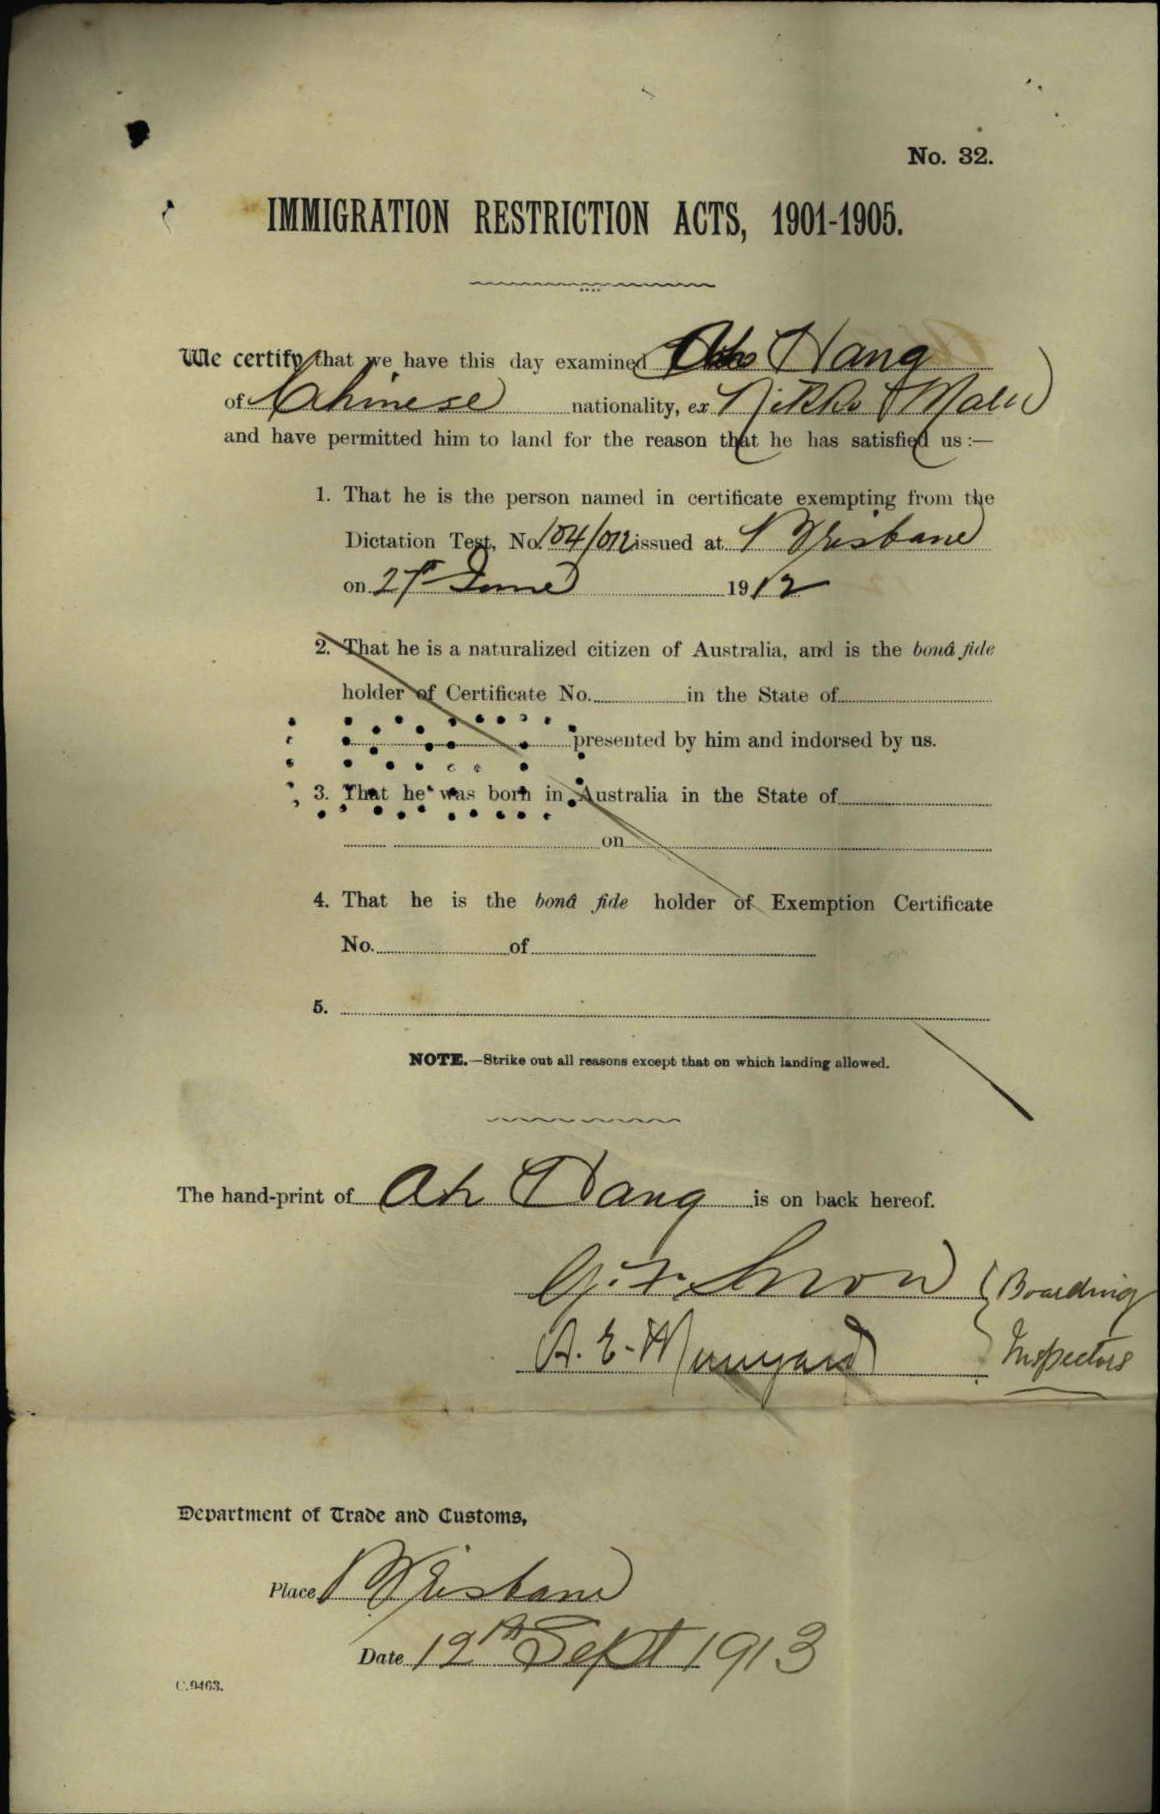 No. 32.
IMMIGRATION RESTRICTION ACTS, 1901-1905.
We certify that we have this day examined Ah Hang
of Chinese nationality, ex Nikko Maru
and have permitted him to land for the reason that he has satisfied us :—
1. That he is the person named in certificate exempting from the
Dictation Test, No. 104/012 issued at Brisbane
on June 1912
2. That he is a naturalized citizen of Australia, and is the bonâ fide
holder of Certificate No. in the State of
presented by him and indorsed by us.
3. That he was born in Australia in the State of
on
4. That he is the bonâ fide holder of Exemption Certificate
No. of
5.
NOTE.—Strike out all reasons except that on which landing allowed.
The hand-print of Ah Hang is on back hereof.
Snow } Boarding
A. E. Munyard } Inspectors
Department of Trade and Customs,
Place Brisbane
Date 12th Sept 1913
C.9463.